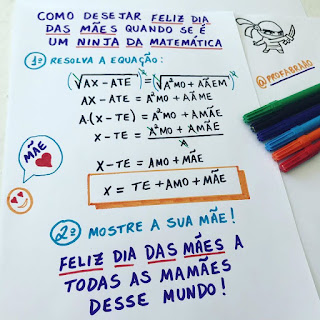 COMO DESEJAR FELIZ DIA
DAS MÃES QUANDO SE É
UM NINJA DA MATEMÁTICA
@PROFABRAÃO
1º RESOLVA A EQUAÇÃO:
(√AX - ATE)² = (√A²MO + AÃEM)²
AX - ATE = A²MO + AÃME
A·(X - TE) = A²MO + AMÃE
X - TE = A²MO + AMÃE
A
X - TE = AMO + MÃE
X = TE + AMO + MÃE
MÃE
2º MOSTRE A SUA MÃE!
FELIZ DIA DAS MÃES A
TODAS AS MAMÃES
DESSE MUNDO!